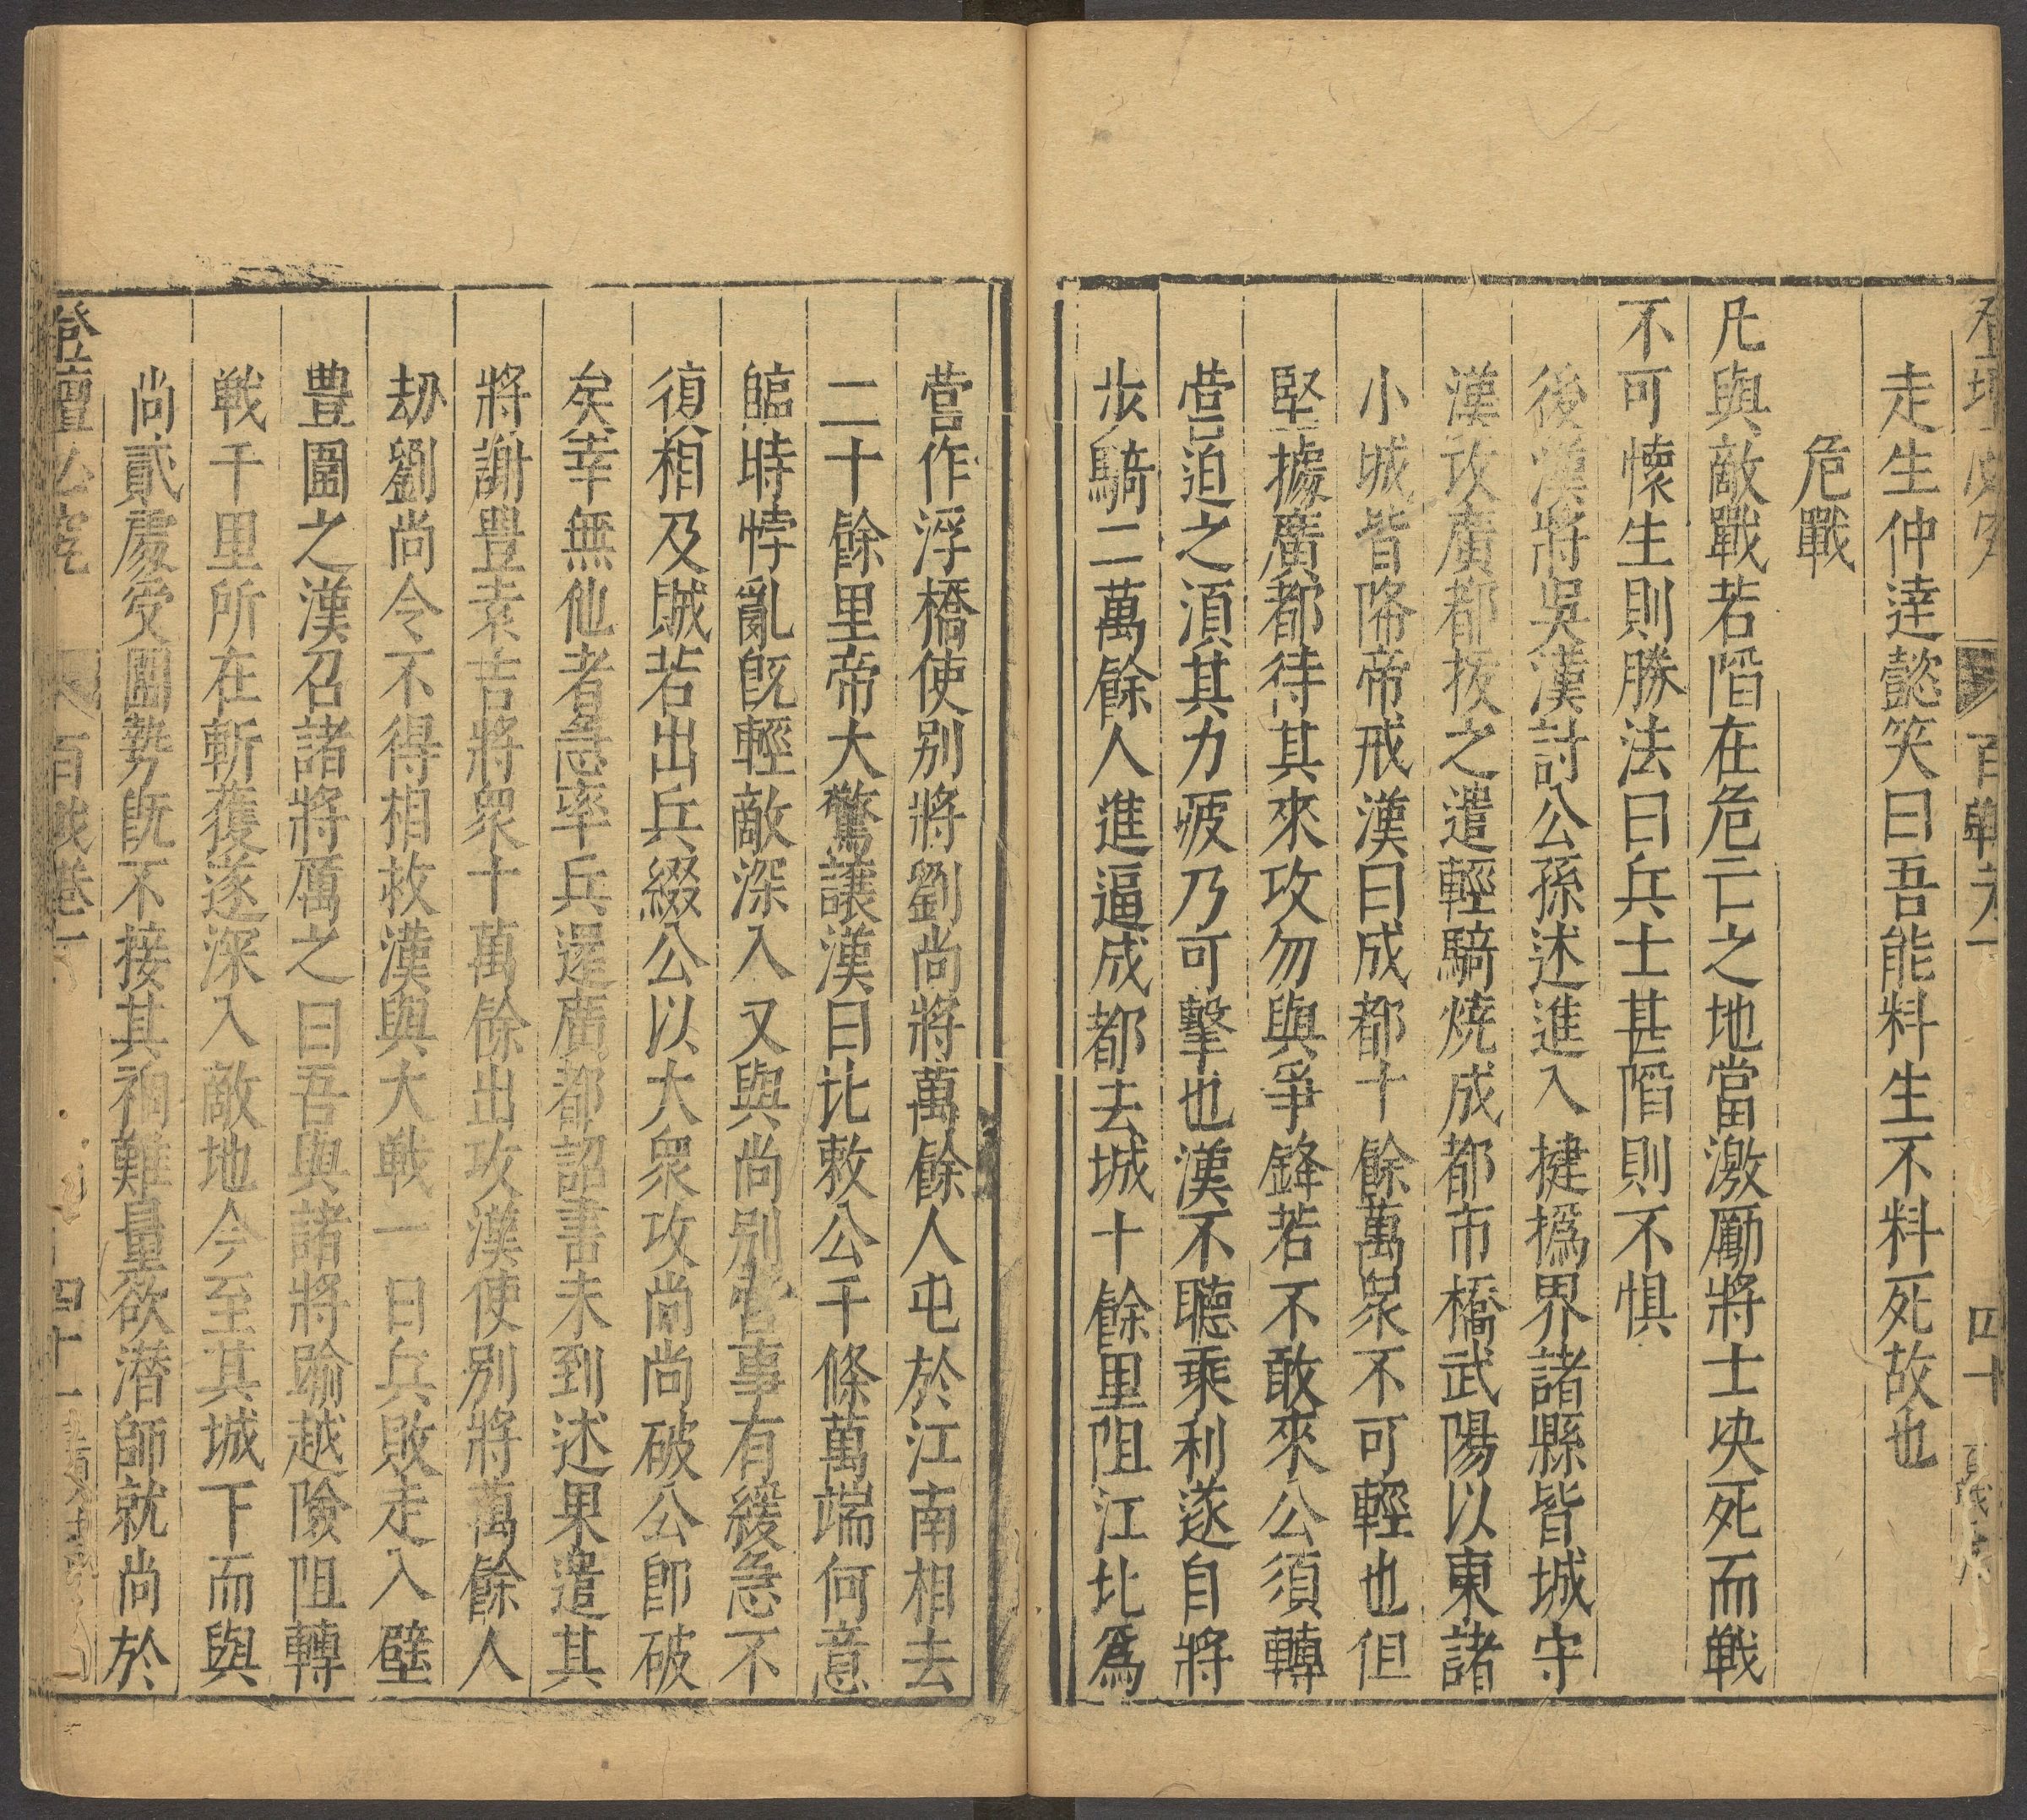 走生仲達懿笑曰吾能料生不料死故也
危戰
凡與敵戰若陷在危亡之地當激勵將士决死而戰
不可懷生則勝法曰兵士甚陷則不惧
後漢將吳漢討公孫述進入揵撝界諸縣皆城守
漢攻廣都拔之遣輕騎燒成都市橋武陽以東諸
小城皆降帝戒漢曰成都十餘萬衆不可輕也但
堅據廣都待其來攻勿與爭鋒若不敢來公須轉
營迫之須其力疲乃可擊也漢不聽乘利遂自將
步騎二萬餘人進逼成都去城十餘里阻江北爲
營作浮橋使别將劉尚將萬餘人屯於江南相去
二十餘里帝大驚讓漢曰比敕公千條萬端何意
臨時悖亂旣輕敵深入又與尚别營事有緩急不
須相及賊若出兵綴公以大衆攻尚尚破公卽破
矣幸無他者急率兵還廣都詔書未到述果遣其
將謝豊袁吉將衆十萬餘出攻漢使別將萬餘人
刼劉尚令不得相救漢與大戰一日兵敗走入壁
豊圍之漢召諸將厲之曰吾與諸將踰越險阻轉
戰千里所在斬獲遂深入敵地今至其城下而與
尚貳處受圍勢旣不接其禍難量欲潜師就尚於
登壇必究 百戰卷一 四十一